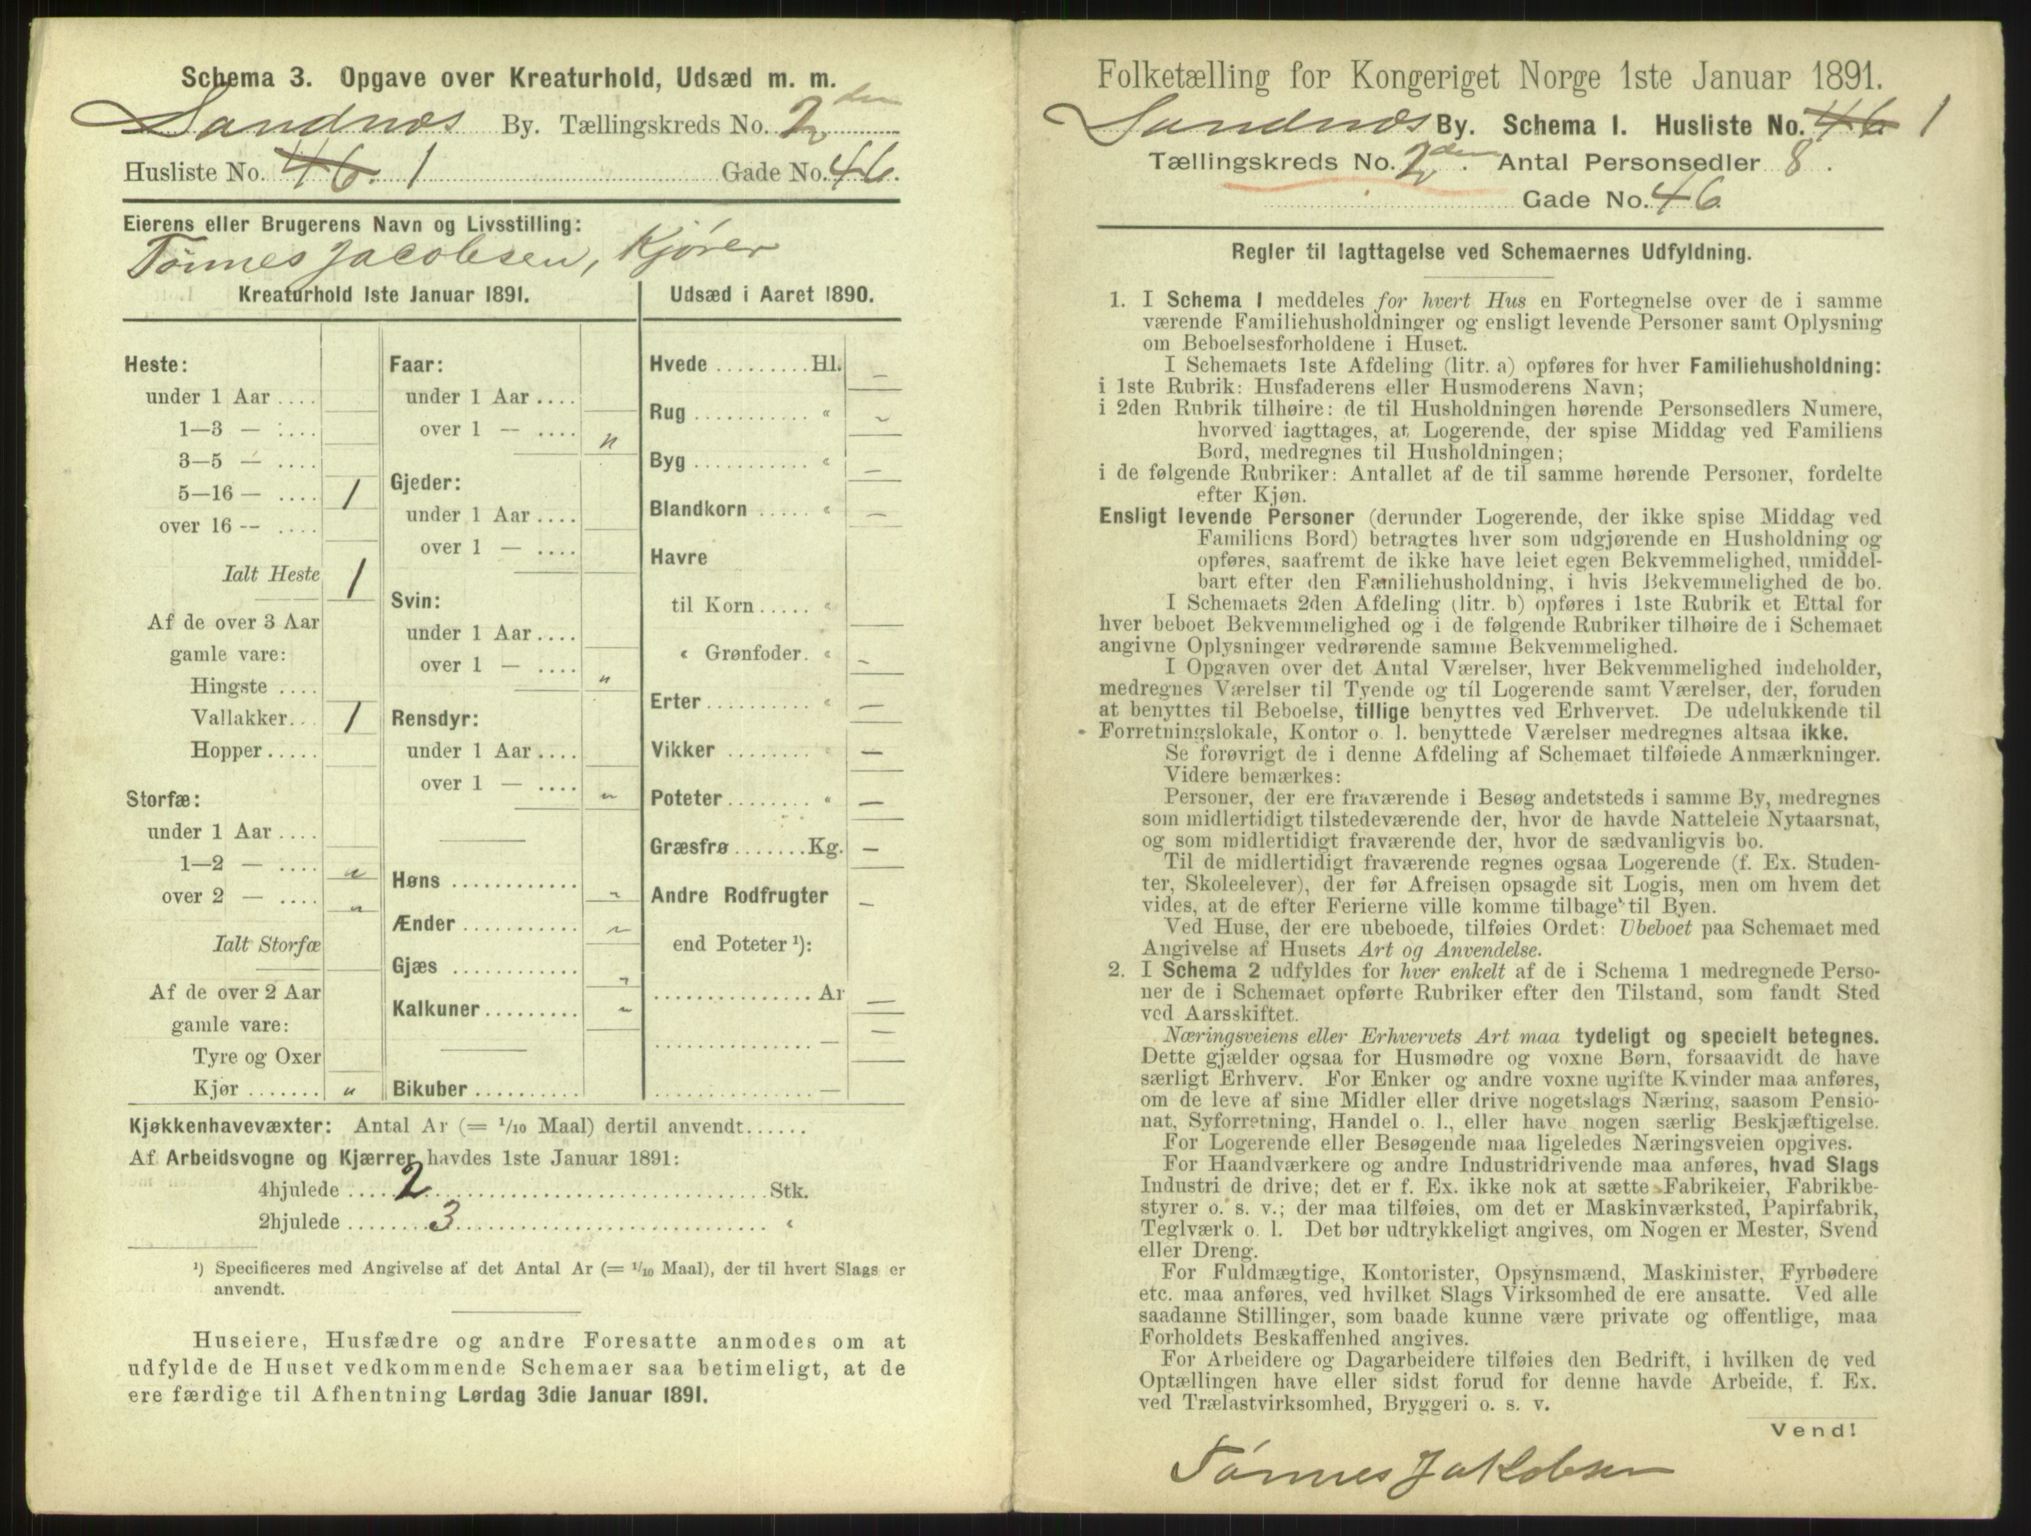 Schema 3. Opgave over Kreaturhold, Udsæd m. m.
Sandnæs By. Tællingskreds No. 2den
Husliste No. 46. 1 Gade No. 46.
Eierens eller Brugerens Navn og Livsstilling:
Tønnes Jacobsen, Kjører
Kreaturhold 1ste Januar 1891.
Heste:
under 1 Aar ....
1—3 — ....
3—5 — ....
5—16 — .... 1
over 16 — ....
Ialt Heste 1
Af de over 3 Aar
gamle vare:
Hingste ....
Vallakker... 1
Hopper.....
Storfæ:
under 1 Aar ....
1—2 — .... "
over 2 — .... "
Ialt Storfæ
Af de over 2 Aar
gamle vare:
Tyre og Oxer
Kjør ....... "
Faar:
under 1 Aar ....
over 1 — .... "
Gjeder:
under 1 Aar ....
over 1 — ....
Svin:
under 1 Aar ....
over 1 — .... "
Rensdyr:
under 1 Aar ....
over 1 — .... "
Høns ............ "
Ænder ........... "
Gjæs ............ "
Kalkuner ......... "
Bikuber ..........
Udsæd i Aaret 1890.
Hvede ......... Hl. —
Rug ........... « —
Byg ........... « —
Blandkorn ..... « —
Havre
til Korn ..... «
« Grønfoder. « —
Erter .......... « —
Vikker ........ « —
Poteter ........ « —
Græsfrø ....... Kg. —
Andre Rodfrugter —
end Poteter ¹):
............... Ar —
............... — —
............... —
Kjøkkenhavevæxter: Antal Ar (= 1/10 Maal) dertil anvendt......
Af Arbeidsvogne og Kjærrer havdes 1ste Januar 1891:
4hjulede ..... 2 ..... Stk.
2hjulede ..... 3 ..... «
¹) Specificeres med Angivelse af det Antal Ar (= 1/10 Maal), der til hvert Slags er
anvendt.
Huseiere, Husfædre og andre Foresatte anmodes om at
udfylde de Huset vedkommende Schemaer saa betimeligt, at de
ere færdige til Afhentning Lørdag 3die Januar 1891.
Folketælling for Kongeriget Norge 1ste Januar 1891.
Sandnæs By. Schema 1. Husliste No. 46 1
Tællingskreds No. 2den. Antal Personsedler 8.
Gade No. 46
Regler til Iagttagelse ved Schemaernes Udfyldning.
1. I Schema 1 meddeles for hvert Hus en Fortegnelse over de i samme
værende Familiehusholdninger og ensligt levende Personer samt Oplysning
om Beboelsesforholdene i Huset.
I Schemaets 1ste Afdeling (litr. a) opføres for hver Familiehusholdning:
i 1ste Rubrik: Husfaderens eller Husmoderens Navn;
i 2den Rubrik tilhøire: de til Husholdningen hørende Personsedlers Numere,
hvorved iagttages, at Logerende, der spise Middag ved Familiens
Bord, medregnes til Husholdningen;
i de følgende Rubriker: Antallet af de til samme hørende Personer, fordelte
efter Kjøn.
Ensligt levende Personer (derunder Logerende, der ikke spise Middag ved
Familiens Bord) betragtes hver som udgjørende en Husholdning og
opføres, saafremt de ikke have leiet egen Bekvemmelighed, umiddel-
bart efter den Familiehusholdning, i hvis Bekvemmelighed de bo.
I Schemaets 2den Afdeling (litr. b) opføres i 1ste Rubrik et Ettal for
hver beboet Bekvemmelighed og i de følgende Rubriker tilhøire de i Schemaet
angivne Oplysninger vedrørende samme Bekvemmelighed.
I Opgaven over det Antal Værelser, hver Bekvemmelighed indeholder,
medregnes Værelser til Tyende og til Logerende samt Værelser, der, foruden
at benyttes til Beboelse, tillige benyttes ved Erhvervet. De udelukkende til
Forretningslokale, Kontor o. l. benyttede Værelser medregnes altsaa ikke.
Se forøvrigt de i denne Afdeling af Schemaet tilføiede Anmærkninger.
Videre bemærkes:
Personer, der ere fraværende i Besøg andetsteds i samme By, medregnes
som midlertidigt tilstedeværende der, hvor de havde Natteleie Nytaarsnat,
og som midlertidigt fraværende der, hvor de sædvanligvis bo.
Til de midlertidigt fraværende regnes ogsaa Logerende (f. Ex. Studen-
ter, Skoleelever), der før Afreisen opsagde sit Logis, men om hvem det
vides, at de efter Ferierne ville komme tilbage til Byen.
Ved Huse, der ere ubeboede, tilføies Ordet: Ubeboet paa Schemaet med
Angivelse af Husets Art og Anvendelse.
2. I Schema 2 udfyldes for hver enkelt af de i Schema 1 medregnede Perso-
ner de i Schemaet opførte Rubriker efter den Tilstand, som fandt Sted
ved Aarsskiftet.
Næringsveiens eller Erhvervets Art maa tydeligt og specielt betegnes.
Dette gjælder ogsaa for Husmødre og voxne Børn, forsaavidt de have
særligt Erhverv. For Enker og andre voxne ugifte Kvinder maa anføres,
om de leve af sine Midler eller drive nogetslags Næring, saasom Pensio-
nat, Syforretning, Handel o. l., eller have nogen særlig Beskjæftigelse.
For Logerende eller Besøgende maa ligeledes Næringsveien opgives.
For Haandværkere og andre Industridrivende maa anføres, hvad Slags
Industri de drive; det er f. Ex. ikke nok at sætte Fabrikeier, Fabrikbe-
styrer o. s. v.; der maa tilføies, om det er Maskinværksted, Papirfabrik,
Teglværk o. l. Det bør udtrykkeligt angives, om Nogen er Mester, Svend
eller Dreng.
For Fuldmægtige, Kontorister, Opsynsmænd, Maskinister, Fyrbødere
etc. maa anføres, ved hvilket Slags Virksomhed de ere ansatte. Ved alle
saadanne Stillinger, som baade kunne være private og offentlige, maa
Forholdets Beskaffenhed angives.
For Arbeidere og Dagarbeidere tilføies den Bedrift, i hvilken de ved
Optællingen have eller sidst forud for denne havde Arbeide, f. Ex.
ved Trælastvirksomhed, Bryggeri o. s. v.
Vend!
Tønnes Jakobsen